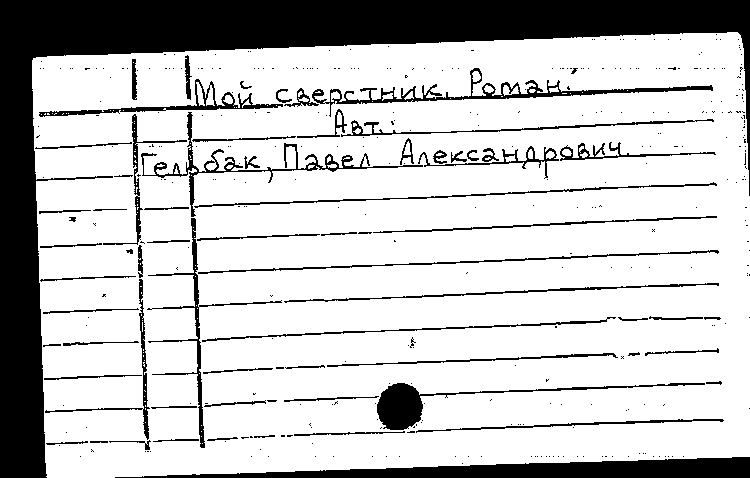 Мой сверстник. Роман.
Авт.:
Гельбак, Павел Александрович.